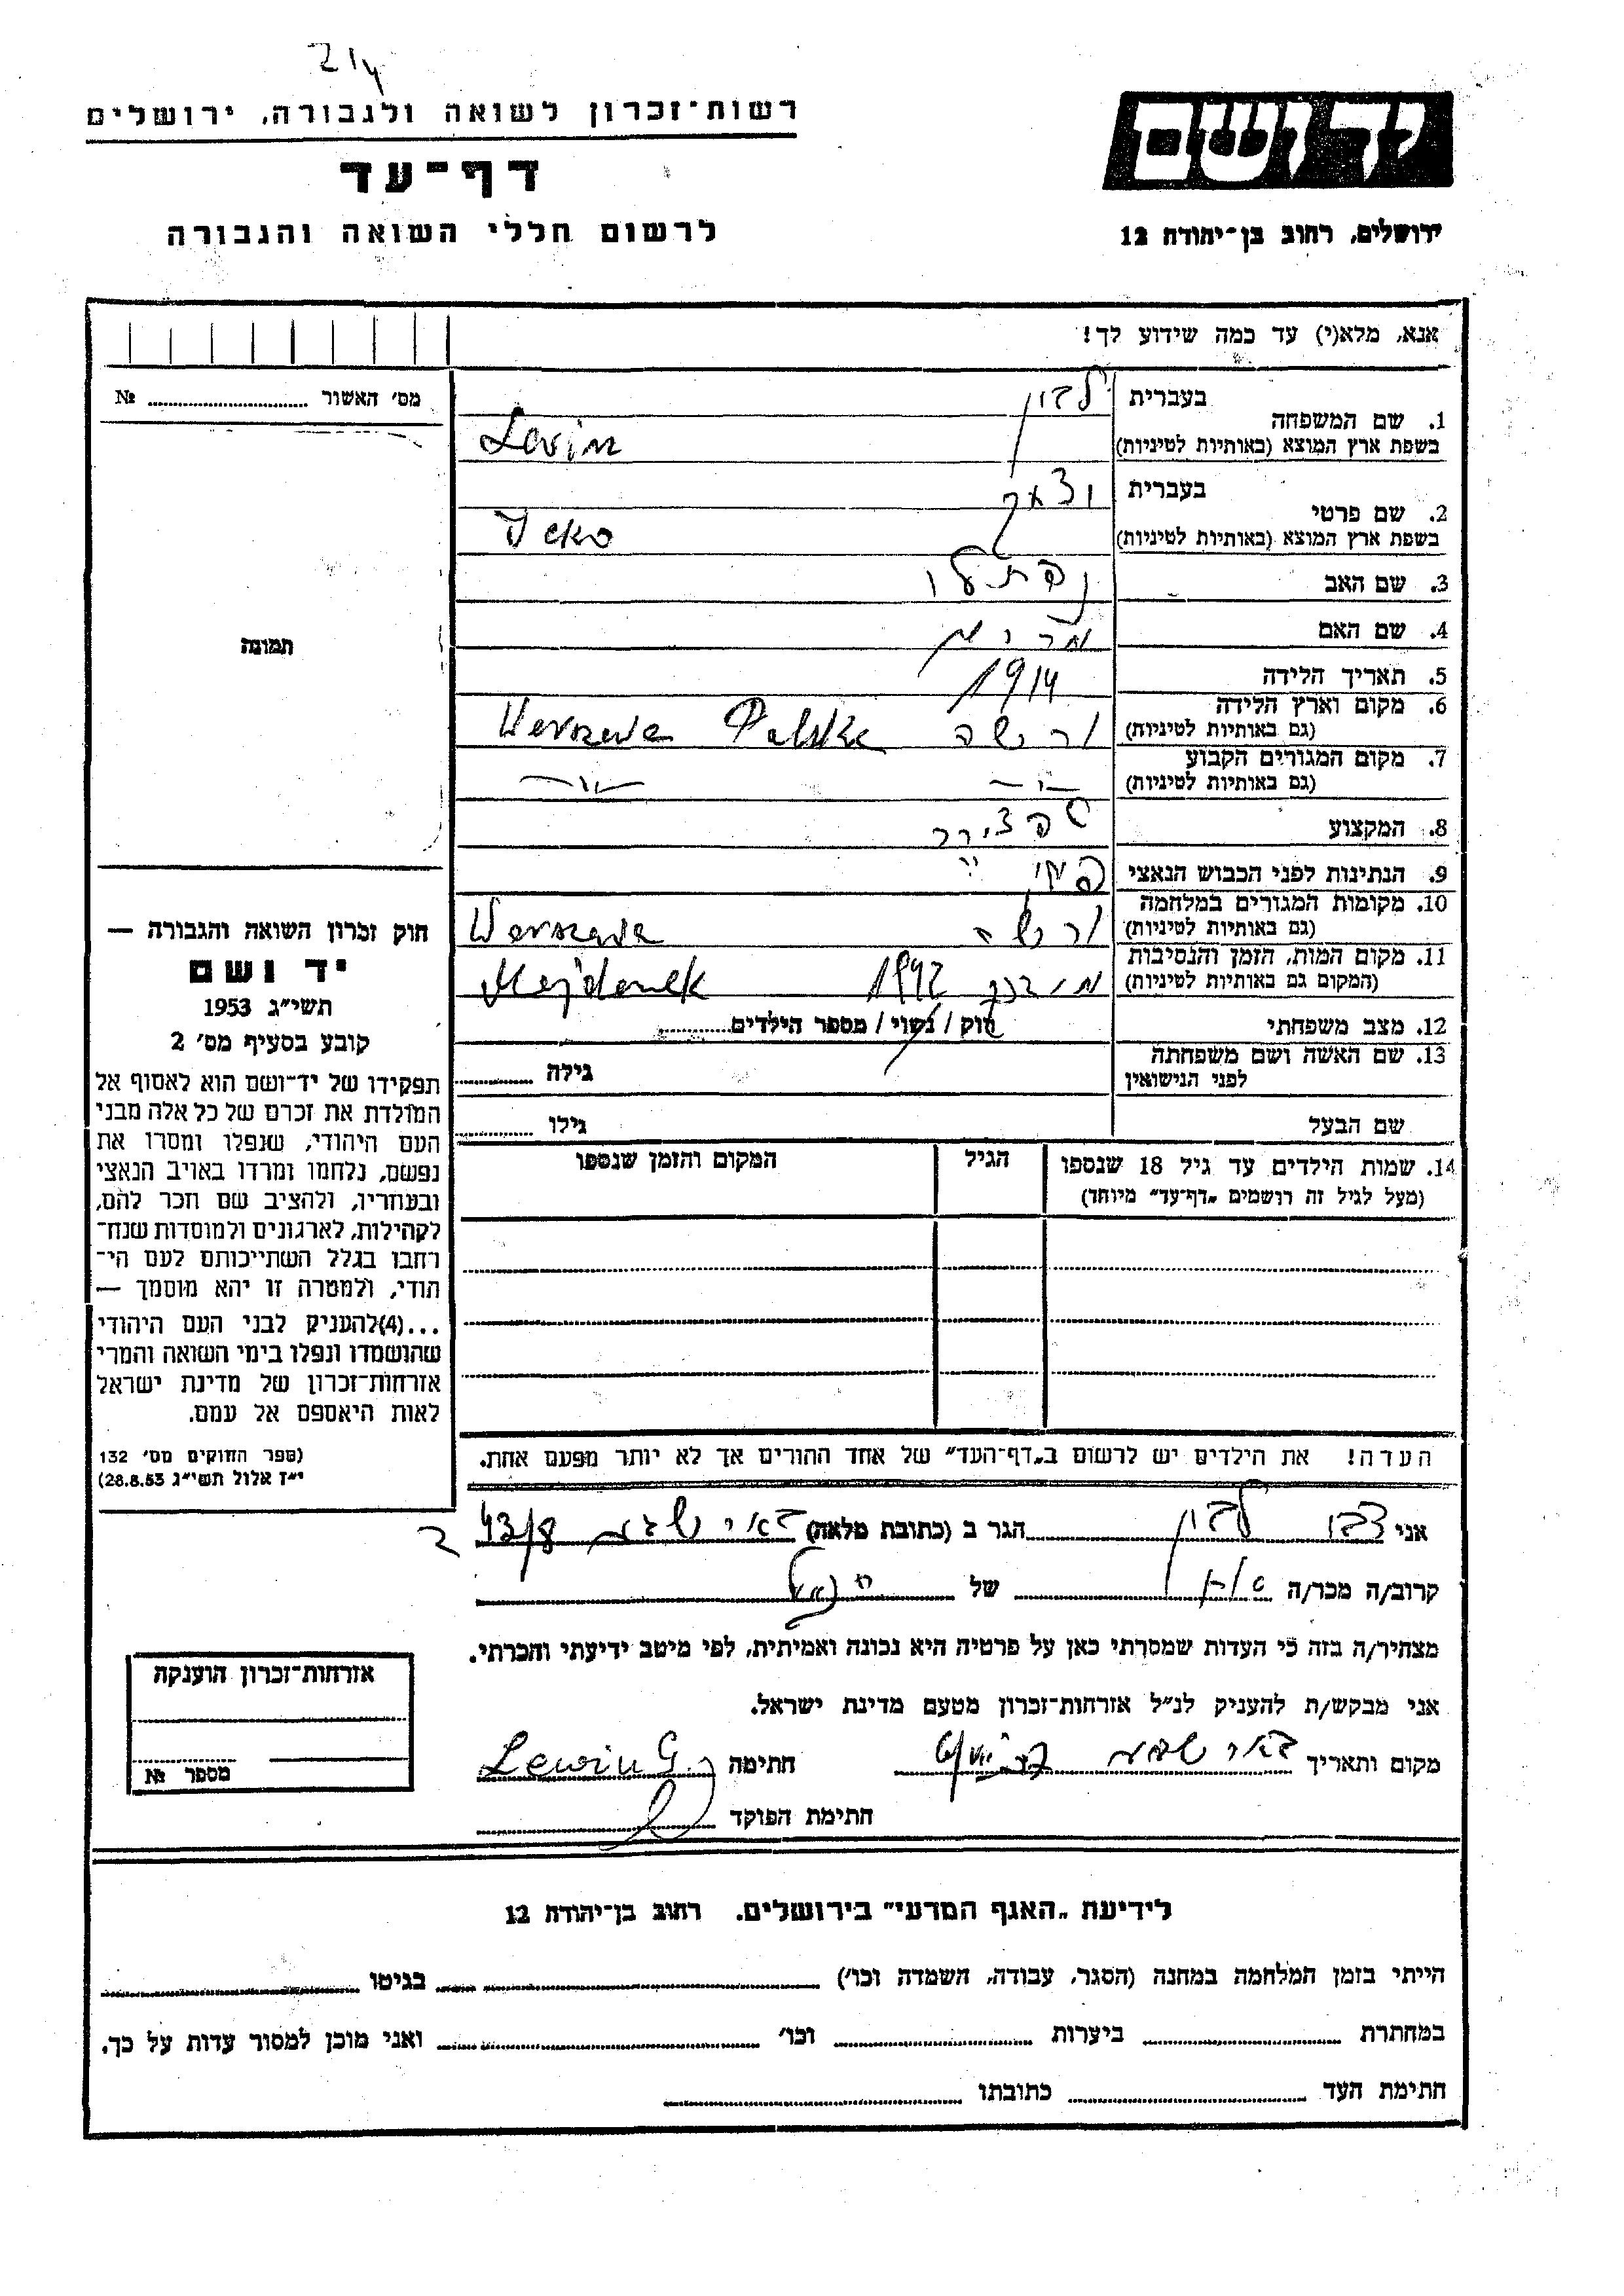 214
רשות־זכרון לשואה ולגבורה, ירושלים
דף־עד
לרשום חללי השואה והגבורה
יד ושם
ירושלים, רחוב בן־יהודה 12
אנא, מלא(י) עד כמה שידוע לך!
מס׳ האשור № 
תמונה
חוק זכרון השואה והגבורה —
יד ושם
תשי״ג 1953
קובע בסעיף מס׳ 2
תפקידו של יד־ושם הוא לאסוף אל
המולדת את זכרם של כל אלה מבני
העם היהודי, שנפלו ומסרו את
נפשם, נלחמו ומרדו באויב הנאצי
ובעוזריו, ולהציב שם וזכר להם,
לקהילות, לארגונים ולמוסדות שנח־
רבו בגלל השתייכותם לעם הי־
הודי, ולמטרה זו יהא מוסמך —
...(4) להעניק לבני העם היהודי
שהושמדו ונפלו בימי השואה והמרי
אזרחות־זכרון של מדינת ישראל
לאות היאספם אל עמם.
(ספר החוקים מס׳ 132
י״ז אלול תשי״ג 28.8.53)
1. שם המשפחה בעברית לוין
בשפת ארץ המוצא (באותיות לטיניות) Lewin
2. שם פרטי בעברית
בשפת ארץ המוצא (באותיות לטיניות) Icko
3. שם האב נפתלי
4. שם האם מרים
5. תאריך הלידה 1914
6. מקום וארץ הלידה (גם באותיות לטיניות) ורשה Warszawa Polska
7. מקום המגורים הקבוע (גם באותיות לטיניות) -"- -"-
8. המקצוע
9. הנתינות לפני הכבוש הנאצי
10. מקומות המגורים במלחמה (גם באותיות לטיניות) ורשה Warszawa
11. מקום המות, הזמן והנסיבות (המקום גם באותיות לטיניות) מידנק 1942 Majdanek
12. מצב משפחתי רווק / נשוי / מספר הילדים
13. שם האשה ושם משפחתה לפני הנישואין גילה
שם הבעל גילו
14. שמות הילדים עד גיל 18 שנספו (מעל לגיל זה רושמים „דף־עד״ מיוחד) הגיל המקום והזמן שנספו
הערה! את הילדים יש לרשום ב„דף־העד״ של אחד ההורים אך לא יותר מפעם אחת.
אני לוין הגר ב (כתובת מלאה) באר שבע 43/8
קרוב/ה מכר/ה של
מצהיר/ה בזה כי העדות שמסרתי כאן על פרטיה היא נכונה ואמיתית, לפי מיטב ידיעתי והכרתי.
אני מבקש/ת להעניק לנ״ל אזרחות־זכרון מטעם מדינת ישראל.
מקום ותאריך באר שבע חתימה Lewin G.
חתימת הפוקד
אזרחות־זכרון הוענקה
מספר №
לידיעת „האגף המדעי״ בירושלים. רחוב בן־יהודה 12
הייתי בזמן המלחמה במחנה (הסגר, עבודה, השמדה וכו׳) בגיטו
במחתרת ביערות וכו׳ ואני מוכן למסור עדות על כך.
חתימת העד כתובתו